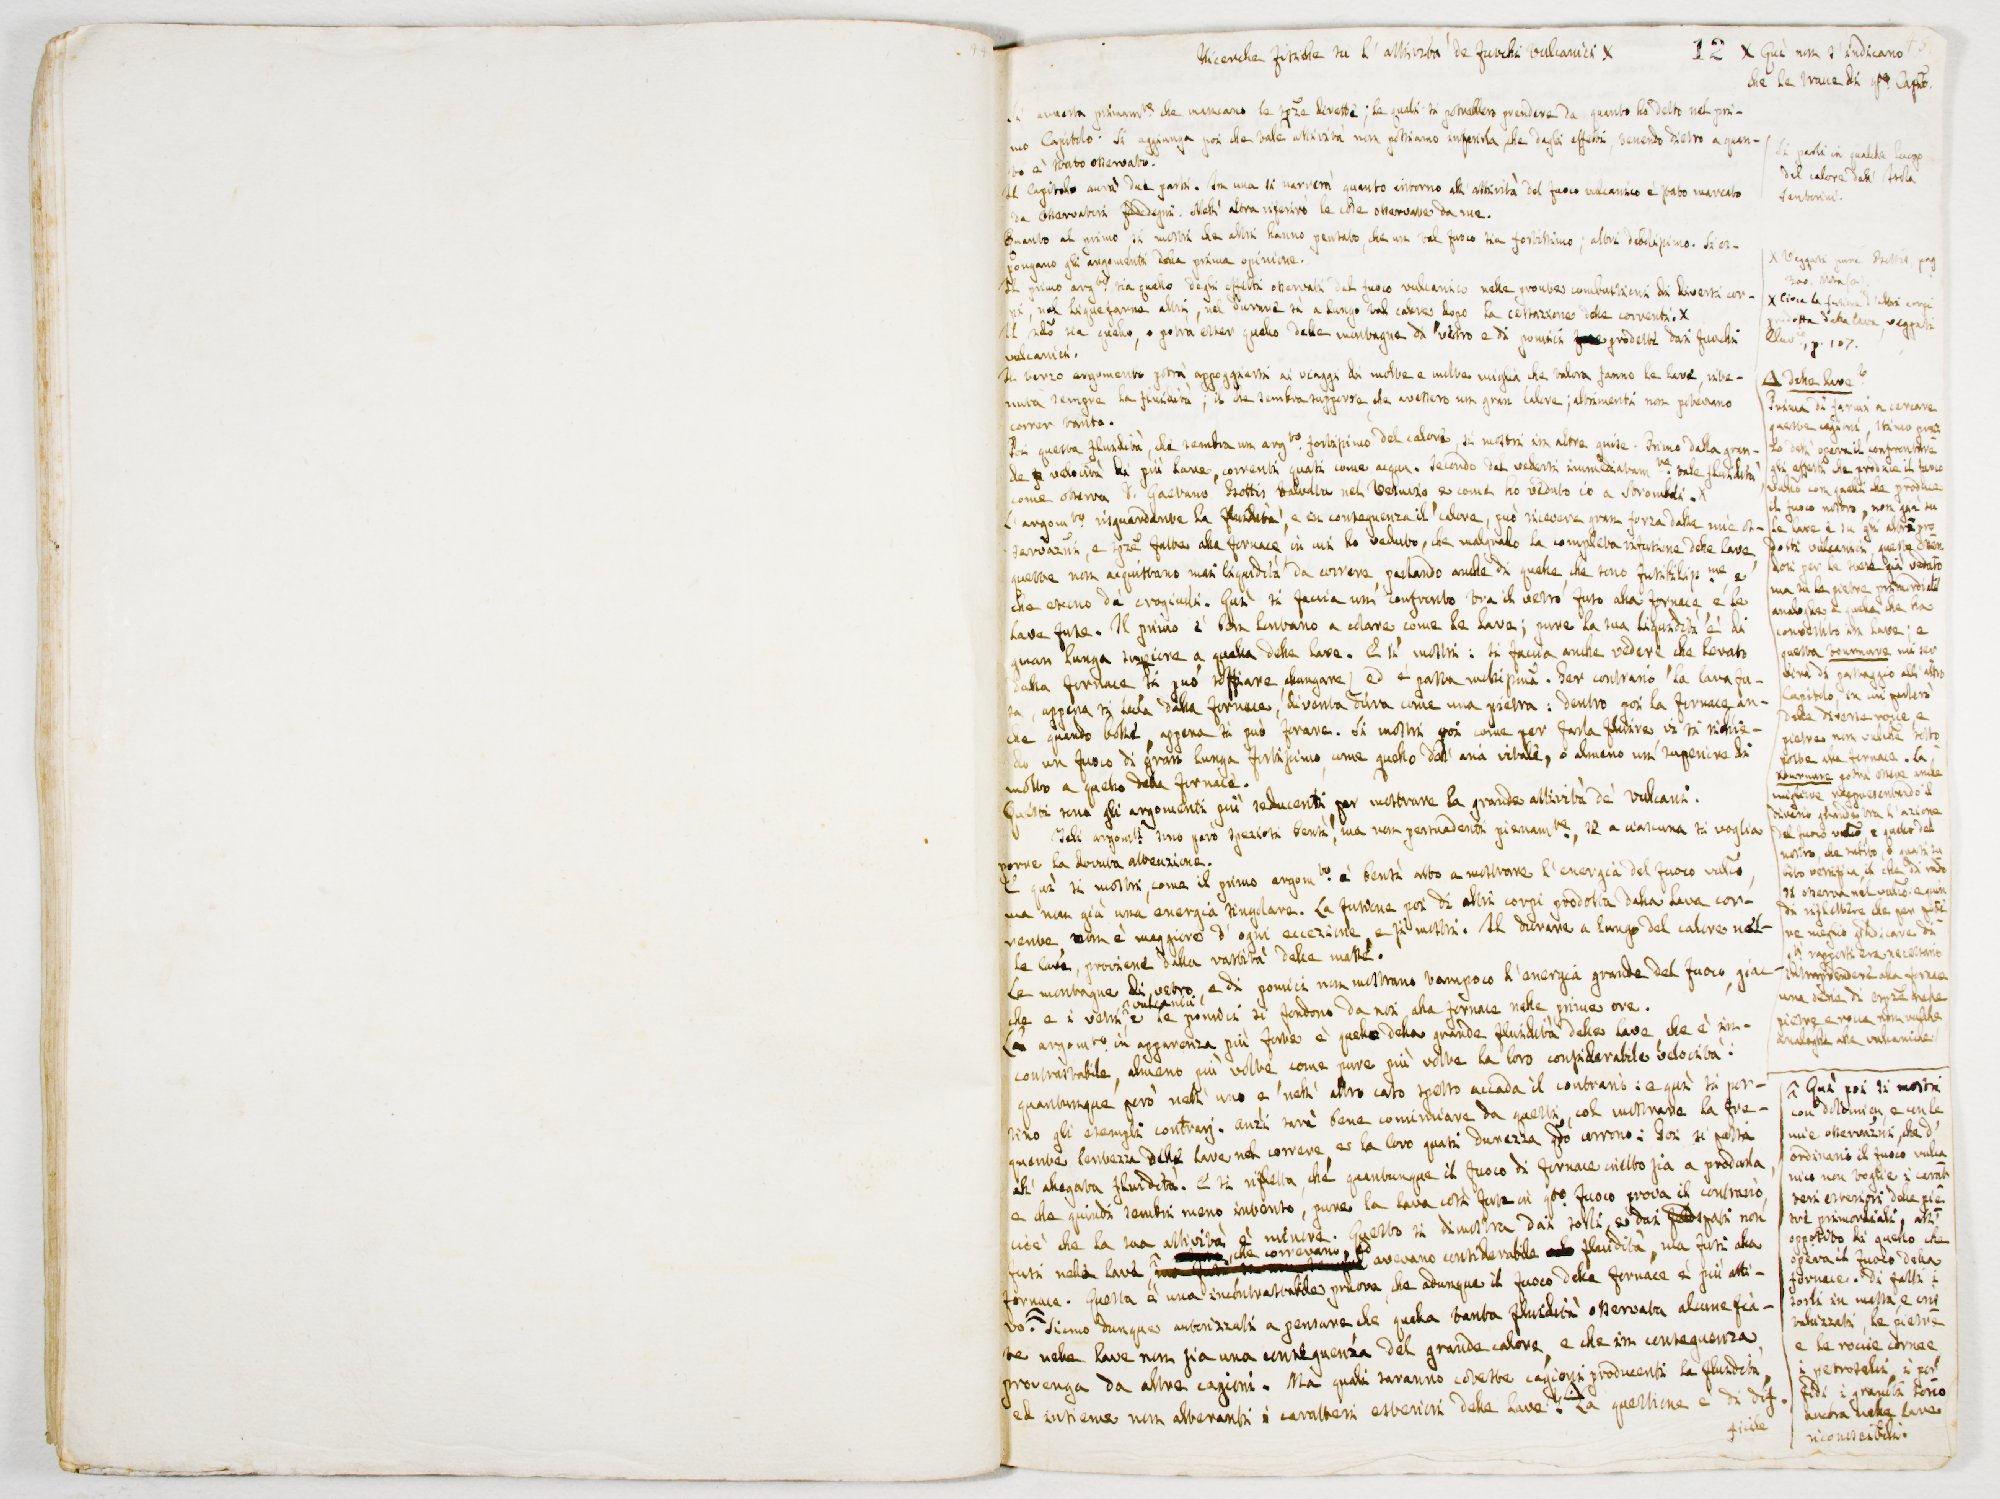 Ricerche fisiche su l'attività de' fuochi vulcanici X
12
X Qui non s'indicano
che le tracce di qto Capito.
Si avverta primamte che mancano le spze dirette; le quali si potrebbero prendere da quanto ho detto nel pri-
mo Capitolo. Si aggiunga poi che tale attività non possiamo inferirla, che dagli effetti, venendo dietro a quan-
to è stato osservato.
Il Capitolo avrà due parti. In una si narrerà quanto intorno all'attività del fuoco vulcanico è stato marcato
da Osservatori fededegni. Nell'altra riferirò le cose osservate da me.
Quanto al primo si mostri che altri hanno pensato, che un tal fuoco sia fortissimo; altri debolissimo. Si es-
pongano gli argomenti della prima opinione.
Il primo argto sia quello degli effetti osservati dal fuoco vulcanico nelle pronte combustioni di diversi cor-
pi, nel liquefarne altri, nel durare sì a lungo tal calore dopo la cessazione delle correnti. X
Il sdo sia quello, o potrà esser quello delle montagne di vetro e di pomici prodotte dai fuochi
vulcanici.
Il terzo argomento potrà appoggiarsi ai viaggi di molte e molte miglia che talora fanno le lave, rite-
nuta sempre la fluidità; il che sembra supporre, che avessero un gran calore; altrimenti non potevano
correr tanto.
Poi questa fluidità, che sembra un argto fortissimo del calore, si mostri in altre guise. Primo dalla gran-
de velocità di più lave, correnti quasi come acqua. Secondo dal vedersi immediatamte tale fluidità,
come osserva P. Gaetano, Bottis talvolta nel Vesuvio e come ho veduto io a Stromboli. X
L'argomto risguardante la fluidità, e in conseguenza il calore, può ricevere gran forza dalle mie os-
servazni, e spze fatte alla fornace, in cui ho veduto, che malgrado la completa rifusione delle lave
queste non acquistano mai liquidità da correre, parlando anche di quelle, che sono fusibilissme e
che escono da' crogiuoli. Qui si faccia un confronto tra il vetro fuso alla fornace, e le
lave fuse. Il primo è ben lontano a colare come le lave; pure la sua liquidità è di
gran lunga superiore a quella delle lave. E si mostri: si faccia anche vedere che levato
dalla fornace si può soffiare, allungare, ed è pasta mollissima. Per contrario la lava fu-
sa, appena si leva dalla fornace, diventa dura come una pietra: dentro poi la fornace an-
che quando bolle, appena si può forare. Si mostri poi come per farla fluire, vi si richie-
de un fuoco di gran lunga fortissimo, come quello dell'aria vitale, o almeno un superiore di
molto a quello della fornace.
Questi sono gli argomenti più seducenti per mostrare la grande attività de' vulcani.
Tali argomti sono però speziosi bensì, ma non persuadenti pienamte, se a ciascuna si voglia
porre la dovuta attenzione.
E quì si mostri, come il primo argomto è bensì atto a mostrare l'energia del fuoco vulco,
ma non già una energia singolare. La fusione poi di altri corpi prodotta dalla lava cor-
rente, non è maggiore d'ogni eccezione, e si mostri. Il durare a lungo del calore nel-
le lave, proviene dalla vastità delle masse.
Le montagne di vetro, e di pomici non mostrano tampoco l'energia grande del fuoco, gia-
che e i vetri vulcanici, e le pomici si fondono da noi alla fornace nelle prime ore.
L'argomto in apparenza più forte è quello della grande fluidità delle lave che è in-
contrastabile, almeno più volte come pure più volte la loro considerabile velocità:
quantunque però nell'uno e nell'altro caso spesso accada il contrario: e quì si por-
tino gli esempli contrarj. Anzi sarà bene cominciare da questi, col mostrare la fre-
quente lentezza delle lave nel correre, e la loro quasi durezza qdo corrono: Poi si passi
all'allegata fluidità. E si rifletta, che quantunque il fuoco di fornace inetto sia a produrla,
e che quindi sembri meno intento, pure la lava così fusa in qto fuoco prova il contrario,
cioè che la sua attività è minore. Questo si dimostra dai sorli, e dai feldspati non
fusi nella lava, che correvano, ed avevano considerabile fluidità, ma fusi alla
fornace. Questa è una incontrastabile pruova, che adunque il fuoco della fornace è più atti-
vo. Siamo dunque autorizzati a pensare che quella tanta fluidità osservata alcune fia-
te nelle lave non sia una conseguenza del grande calore, e che in conseguenza
provenga da altre cagioni. Ma quali saranno coteste cagioni producenti la fluidità,
ed insieme non alteranti i caratteri esteriori delle lave? La questione è di dif-
ficile
Si parli in qualche luogo
del calore dell'Isola
Santorini.
X Veggasi pure Bottis, pag
X Cioè la fusione d'altri corpi
prodotta dalla lava, veggasi
p. 107.
Δ delle lave?
Prima di farmi a cercare
queste cagioni, stimo prez-
zo dell'opera il confrontare
gli effetti che produce il fuoco
vulco con quelli che produce
il fuoco nostro, non già su
le lave e su gli altri pro-
dotti vulcanici, queste essen-
dosi per le spze già veduto
ma su le pietre primordiali
analoghe a quelle che ha
convertito in lave; e
questa tournure mi ser-
virà di passaggio all'altro
Capitolo, in cui parlerò
delle diverse rocce, e
pietre non vulche sotto
poste alla fornace. La
tournure potrà essere anche
migliore rappresentando il
divario grande tra l'azione
del fuoco vulco, e quello del
nostro, che subito, o quasi su
bito vetrifica, il che di rado
si osserva nel vulco. e quin
di riflettere che per poter
ne meglio giudicare di
gti rapporti era necessario
intraprendere alla fornace
una serie di spze nelle
pietre e rocce non vulche
analoghe alle vulcaniche
Quì poi si mostri
con Dolomieu, e con le
mie osservazni, che d'
ordinario il fuoco vulca
nico non toglie i carat-
teri esteriori delle pie-
tre primordiali, all'
opposito di quello che
opera il fuoco della
fornace. Di fatti i
sorli in massa, e cri
stalizzati, le pietre
e le rocce cornee
i petroselci, i por
fidi i graniti sono
ancora nelle lave
riconoscibili.